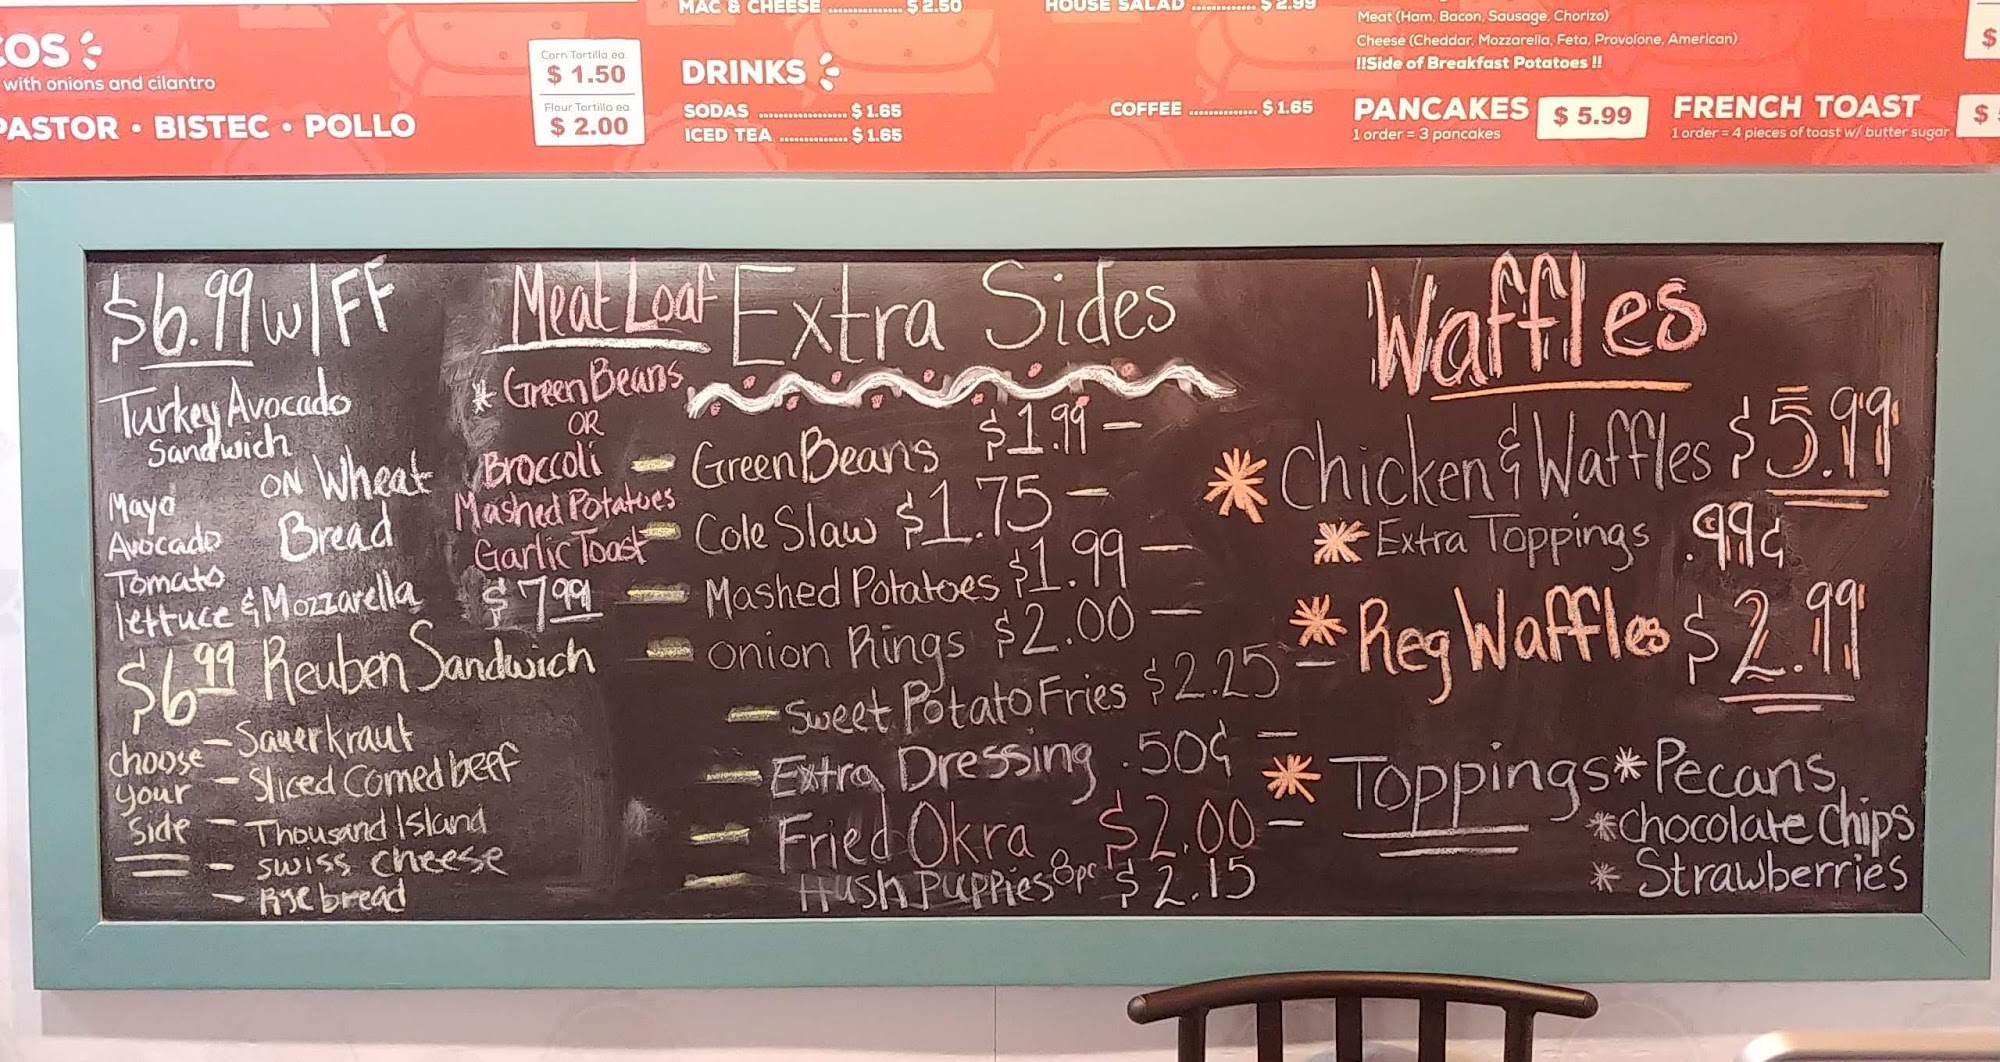 MAC & CHEESE .............. $ 2.50
HOUSE SALAD ............. $ 2.99
Meat (Ham, Bacon, Sausage, Chorizo)
Cheese (Cheddar, Mozzarella, Feta, Provolone, American)
!!Side of Breakfast Potatoes !!
COS
with onions and cilantro
PASTOR • BISTEC • POLLO
Corn Tortilla ea.
$ 1.50
Flour Tortilla ea.
$ 2.00
DRINKS
SODAS .................. $ 1.65
ICED TEA .............. $ 1.65
COFFEE ............. $ 1.65
PANCAKES $ 5.99
1 order = 3 pancakes
FRENCH TOAST $
1 order = 4 pieces of toast w/ butter sugar
$
$6.99 w/FF
Turkey Avocado
Sandwich
ON Wheat
Bread
Mayo
Avocado
Tomato
lettuce & Mozzarella
$6.99 Reuben Sandwich
choose
your
side
- Sauerkraut
- Sliced Corned beef
- Thousand Island
- swiss cheese
- Rye bread
Meat Loaf
* Green Beans
OR
Broccoli
Mashed Potatoes
Garlic Toast
$7.99
Extra Sides
- Green Beans $1.99 -
- Cole Slaw $1.75 -
- Mashed Potatoes $1.99 -
- Onion Rings $2.00 -
- Sweet Potato Fries $2.25 -
- Extra Dressing .50¢ -
- Fried Okra $2.00 -
- Hush Puppies 8pc $2.15
Waffles
* Chicken & Waffles $5.99
* Extra Toppings .99¢
* Reg Waffles $2.99
* Toppings * Pecans
* Chocolate Chips
* Strawberries